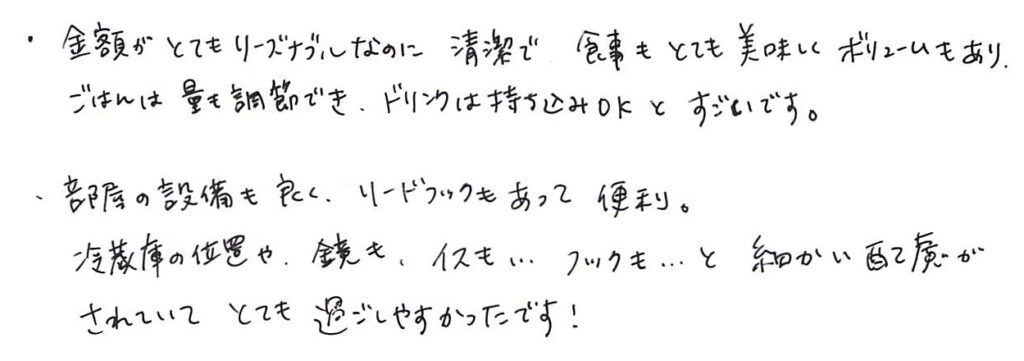 ・金額がとてもリーズナブルなのに 清潔で 食事もとても美味しくボリュームもあり、
ごはんは量も調節でき、ドリンクは持ち込みOKと すごいです。
・部屋の設備も良く、リードフックもあって 便利。
冷蔵庫の位置や、鏡も、イスも… フックも…と 細かい配慮が
されていて とても 過ごしやすかったです!